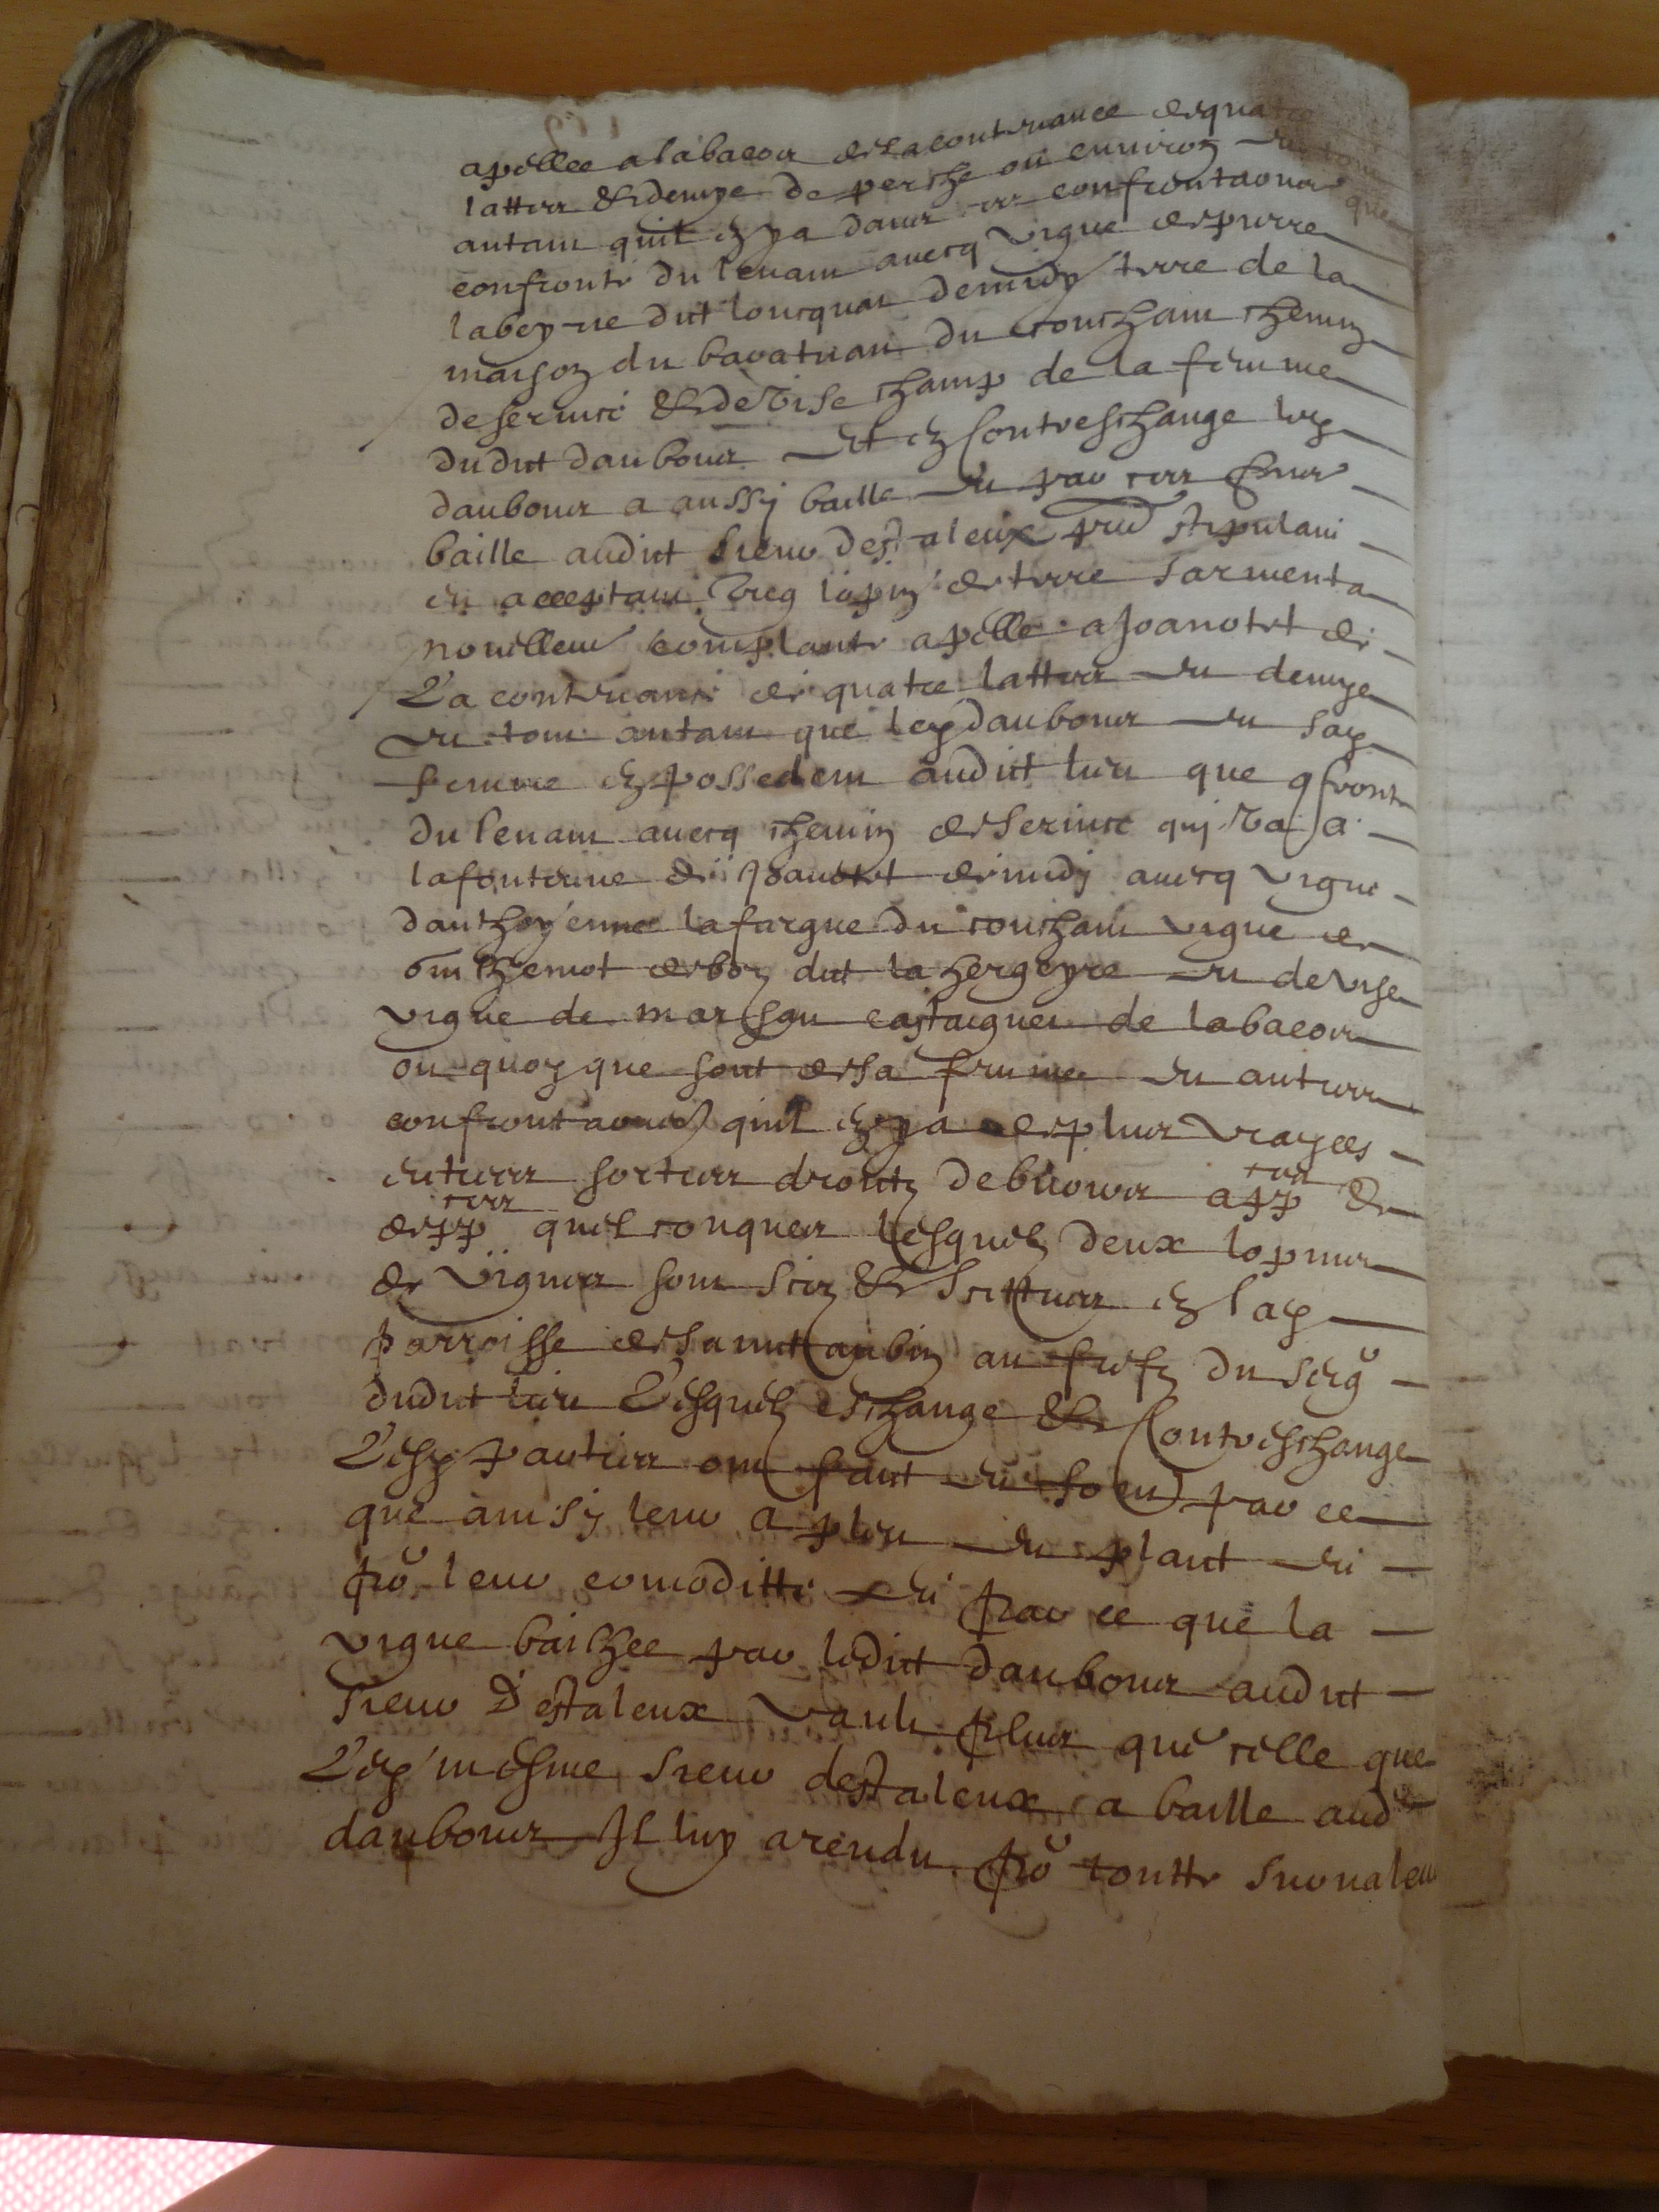 apellee a labacou de la contenance de quatre
lattes & demye de perche ou environ et tout
autant quil en y a dans ces confrontaons que
confronte du levant avecq vigne de pierre
labeyrie dict loucquat de midy terre de la
maison du bavatuan du couchant chemin
de service & de vise champ de la femme
dudict daubons et en contreschange led
daubons a aussy baille et par ces pntes
baille audict sieur destaleux pnt stipulant
et acceptant ung lopin de terre sarmenta
nouvellemt complante apelle a Joanotet de
la contenance de quatre lattes et demye
et tout autant que led daubons et sad
femme en possedent audict lieu que confronte
du levant avecq chemin de service quy va a
la fonteine de Joanotet de midy avecq vigne
danthoyenne lafargue du couchant vigne de
guilhemot debon dict la hergeyre et de vise
vigne de marison castaignet de labacou
ou quoy que soit de sa femme et autres
confrontaons quil en y a de plus vrayees
entrees sorties droictz debvoirs app ces &
depp ces quelconques lesquelz deux lopins
de vignes sont scis & scittues en lad
parroisse de sainct aubin au fiefz du seigr
dudict lieu lesquelz eschange & contreschange
lesd parties ont faict et font par ce
que ainsy leur a pleu et plaict et
pour leur comoditte et par ce que la
vigne bailhee par ledict daubons audict
sieur d'estaleux vault plus que celle que
led mesme sieur destaleux a baille aud
daubons Il luy a rendu pour toutte survaleur